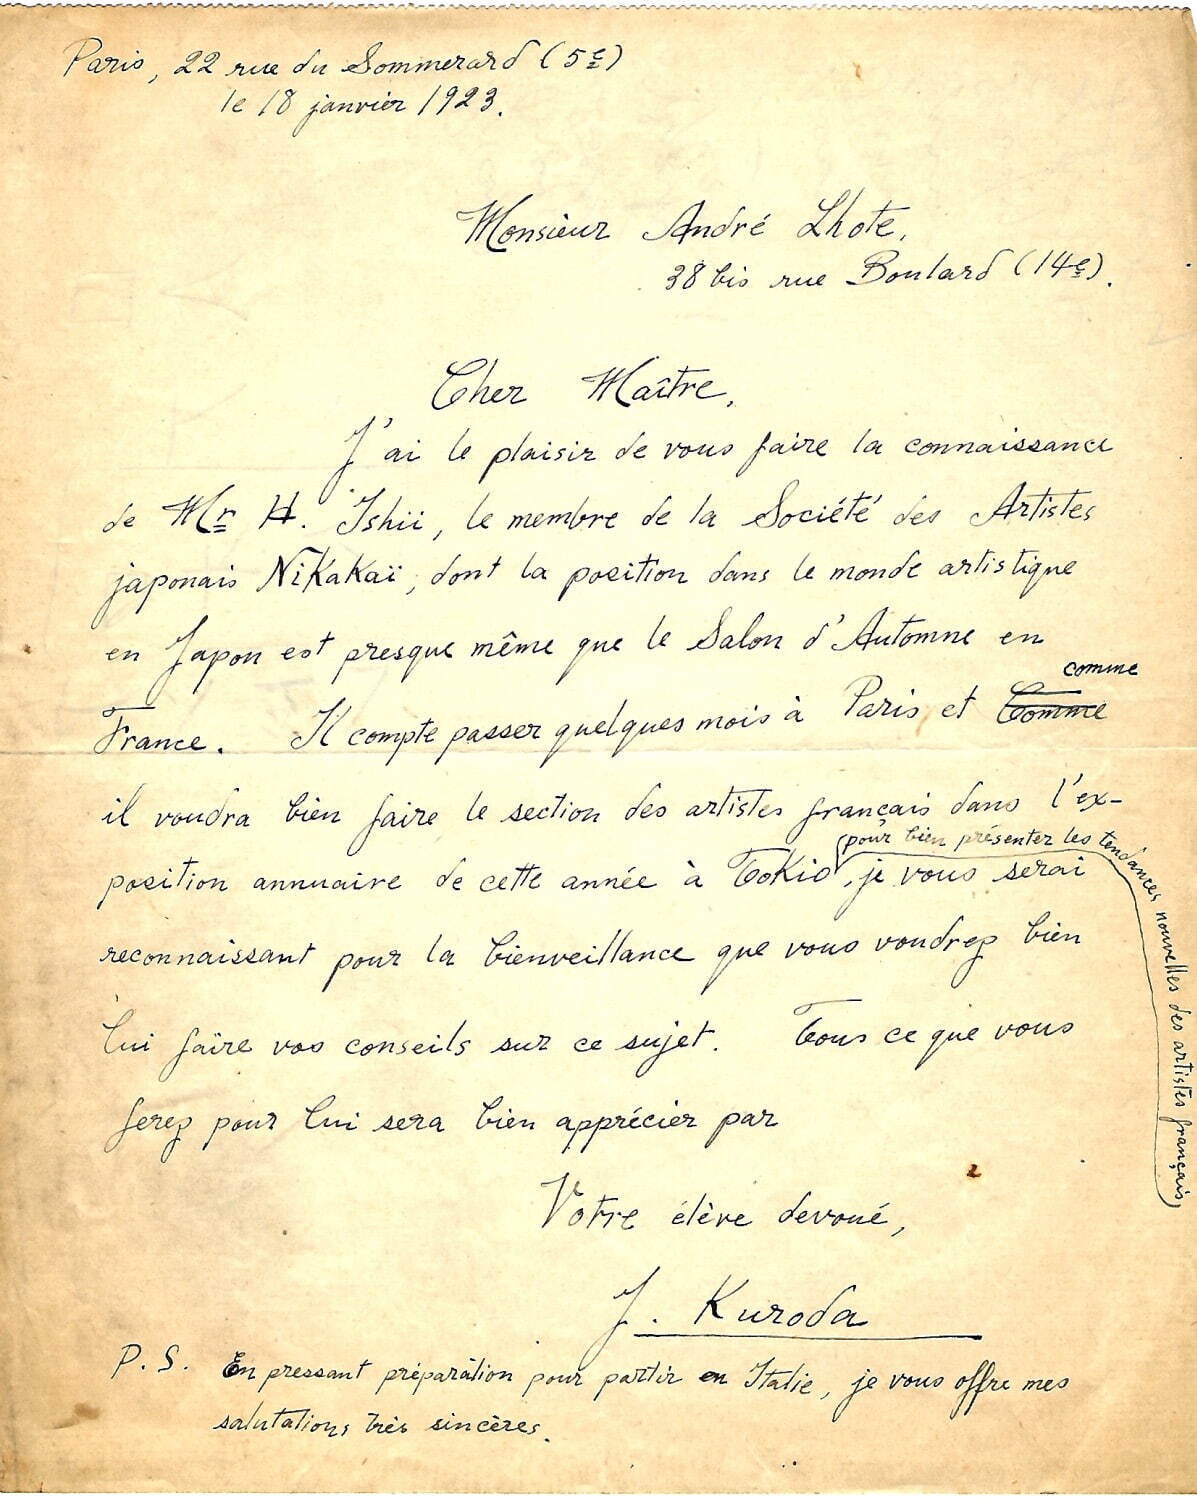 Paris, 22 rue du Sommerard (5e)
le 18 janvier 1923.
Monsieur André Lhote,
38 bis rue Boulard (14e).
Cher Maître,
J'ai le plaisir de vous faire la connaissance
de Mr H. Ishii, le membre de la Société des Artistes
japonais NiKaKaï, dont la position dans le monde artistique
en Japon est presque même que le Salon d'Automne en
France. Il compte passer quelques mois à Paris et Comme comme
il voudra bien faire le section des artistes français dans l'ex-
position annuaire de cette année à ToKio, je vous serai
(pour bien présenter les tendances nouvelles des artistes français)
reconnaissant pour la bienveillance que vous voudrez bien
lui faire vos conseils sur ce sujet. Tous ce que vous
ferez pour lui sera bien apprécier par
Votre élève devoué,
J. Kuroda
P.S. En pressant préparation pour partir en Italie, je vous offre mes
salutations très sincères.